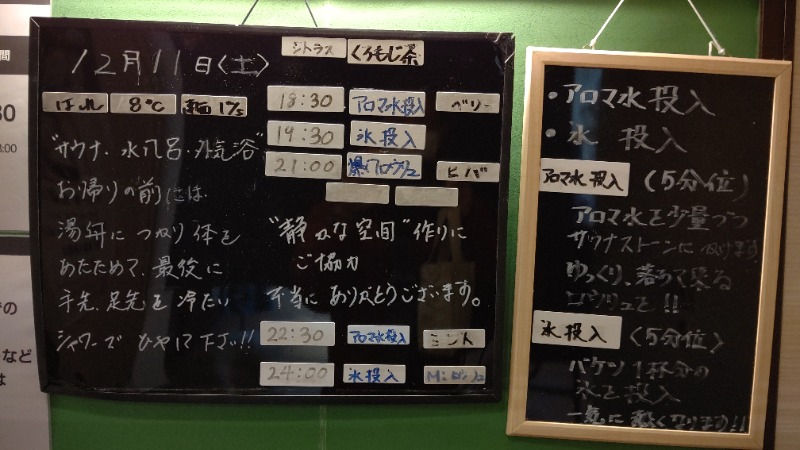 12月11日(土)
シトラス くろもじ茶
はれ 8℃ 東 1m/s
18:30 アロマ水投入 ベリー
19:30 氷投入
21:00 爆アロウリュ ヒバ
"サウナ・水風呂・外気浴"
お帰りの前には
湯舟につかり体を
あたためて、最後に
手先、足先を冷たい
シャワーでひやして下さい!!
"静かな空間"作りに
ご協力
本当にありがとうございます。
22:30 アロマ水投入 ミント
24:00 氷投入
・アロマ水投入
・氷 投入
アロマ水投入 (5分位)
アロマ水を少量づつ
サウナストーンにかけます
ゆっくり、落ちて来る
ロウリュを!!
氷投入 (5分位)
バケツ1杯分の
氷を投入
一気に熱くなります!!
間
30
:00
の
など
は